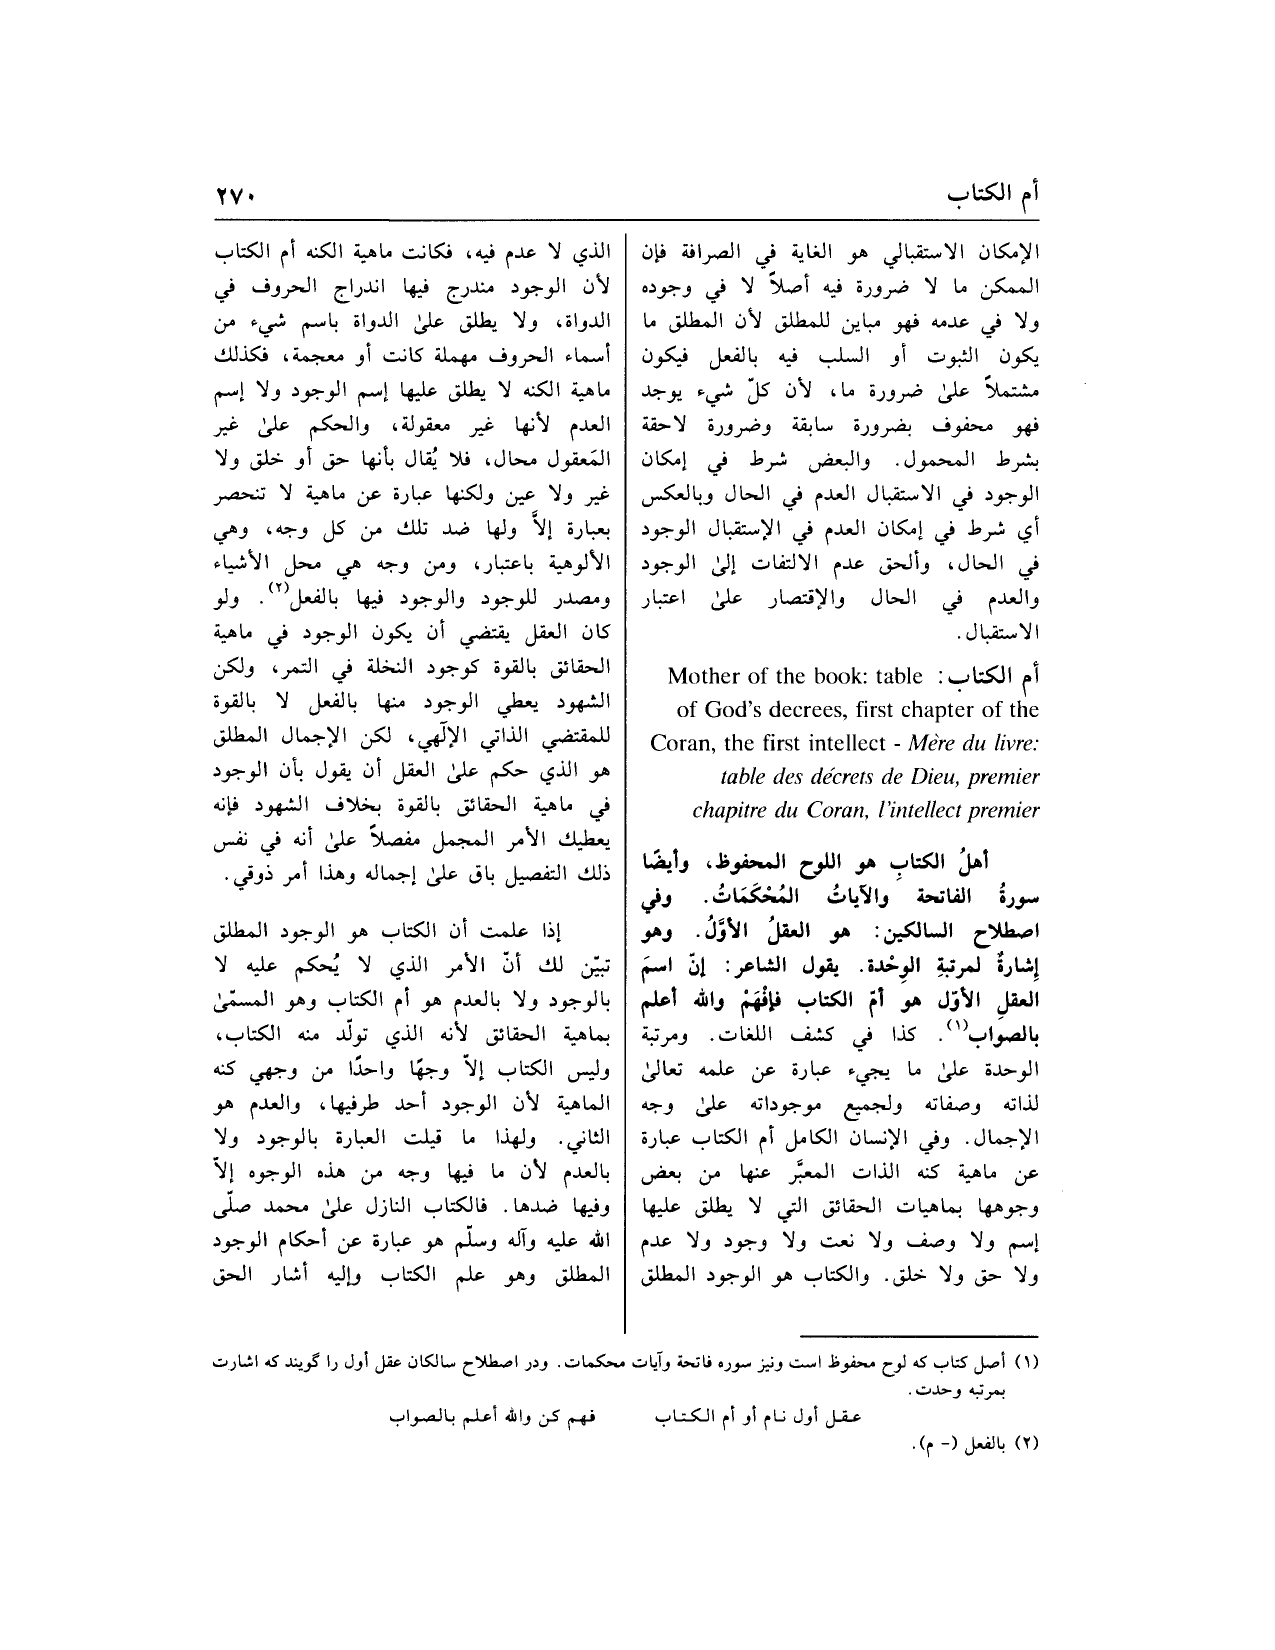 أم الكتاب
٢٧٠
الإمكان الاستقبالي هو الغاية في الصرافة فإن
الممكن ما لا ضرورة فيه أصلاً لا في وجوده
ولا في عدمه فهو مباين للمطلق لأن المطلق ما
يكون الثبوت أو السلب فيه بالفعل فيكون
مشتملاً علىٰ ضرورة ما، لأن كلّ شيء يوجد
فهو محفوف بضرورة سابقة وضرورة لاحقة
بشرط المحمول. والبعض شرط في إمكان
الوجود في الاستقبال العدم في الحال وبالعكس
أي شرط في إمكان العدم في الإستقبال الوجود
في الحال، وألحق عدم الالتفات إلىٰ الوجود
والعدم في الحال والإقتصار علىٰ اعتبار
الاستقبال.
أم الكتاب: Mother of the book: table
of God's decrees, first chapter of the
Coran, the first intellect - Mère du livre:
table des décrets de Dieu, premier
chapitre du Coran, l'intellect premier
أهلُ الكتابِ هو اللوح المحفوظ، وأيضًا
سورةُ الفاتحة والآياتُ المُحْكَمَاتُ. وفي
اصطلاح السالكين: هو العقلُ الأوَّلُ. وهو
إشارةٌ لمرتبةِ الوِحْدة. يقول الشاعر: إنّ اسمَ
العقلِ الأوّل هو أمّ الكتاب فإفْهَمْ والله أعلم
بالصواب(١). كذا في كشف اللغات. ومرتبة
الوحدة علىٰ ما يجيء عبارة عن علمه تعالىٰ
لذاته وصفاته ولجميع موجوداته علىٰ وجه
الإجمال. وفي الإنسان الكامل أم الكتاب عبارة
عن ماهية كنه الذات المعبَّر عنها من بعض
وجوهها بماهيات الحقائق التي لا يطلق عليها
إسم ولا وصف ولا نعت ولا وجود ولا عدم
ولا حق ولا خلق. والكتاب هو الوجود المطلق
الذي لا عدم فيه، فكانت ماهية الكنه أم الكتاب
لأن الوجود مندرج فيها اندراج الحروف في
الدواة، ولا يطلق علىٰ الدواة باسم شيء من
أسماء الحروف مهملة كانت أو معجمة، فكذلك
ماهية الكنه لا يطلق عليها إسم الوجود ولا إسم
العدم لأنها غير معقولة، والحكم علىٰ غير
المَعقول محال، فلا يُقال بأنها حق أو خلق ولا
غير ولا عين ولكنها عبارة عن ماهية لا تنحصر
بعبارة إلاَّ ولها ضد تلك من كل وجه، وهي
الألوهية باعتبار، ومن وجه هي محل الأشياء
ومصدر للوجود والوجود فيها بالفعل(٢). ولو
كان العقل يقتضي أن يكون الوجود في ماهية
الحقائق بالقوة كوجود النخلة في التمر، ولكن
الشهود يعطي الوجود منها بالفعل لا بالقوة
للمقتضي الذاتي الإلٰهي، لكن الإجمال المطلق
هو الذي حكم علىٰ العقل أن يقول بأن الوجود
في ماهية الحقائق بالقوة بخلاف الشهود فإنه
يعطيك الأمر المجمل مفصلاً علىٰ أنه في نفس
ذلك التفصيل باق علىٰ إجماله وهذا أمر ذوقي.
إذا علمت أن الكتاب هو الوجود المطلق
تبيّن لك أنّ الأمر الذي لا يُحكم عليه لا
بالوجود ولا بالعدم هو أم الكتاب وهو المسمّىٰ
بماهية الحقائق لأنه الذي تولّد منه الكتاب،
وليس الكتاب إلاّ وجهًا واحدًا من وجهي كنه
الماهية لأن الوجود أحد طرفيها، والعدم هو
الثاني. ولهذا ما قيلت العبارة بالوجود ولا
بالعدم لأن ما فيها وجه من هذه الوجوه إلاّ
وفيها ضدها. فالكتاب النازل علىٰ محمد صلّى
الله عليه وآله وسلّم هو عبارة عن أحكام الوجود
المطلق وهو علم الكتاب وإليه أشار الحق
(١) أصل كتاب كه لوح محفوظ است ونيز سوره فاتحة وآيات محكمات. ودر اصطلاح سالكان عقل أول را گويند كه اشارت
بمرتبه وحدت.
عقل أول نام أو أم الكتاب فهم كن والله أعلم بالصواب
(٢) بالفعل (- م).